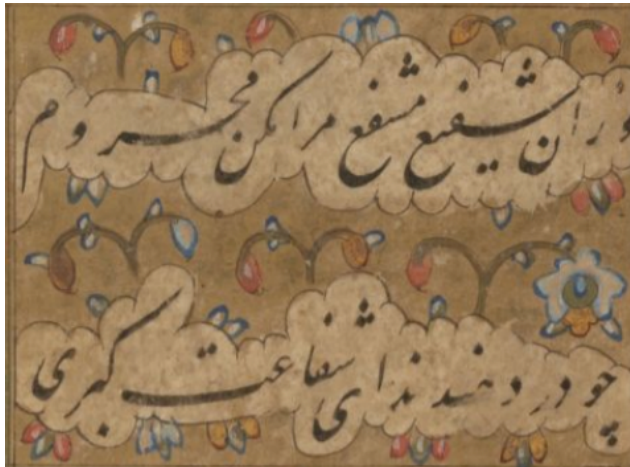 وزان شفیع مشفع مرا مکن محروم
چو در دهند ندای شفاعت کبری